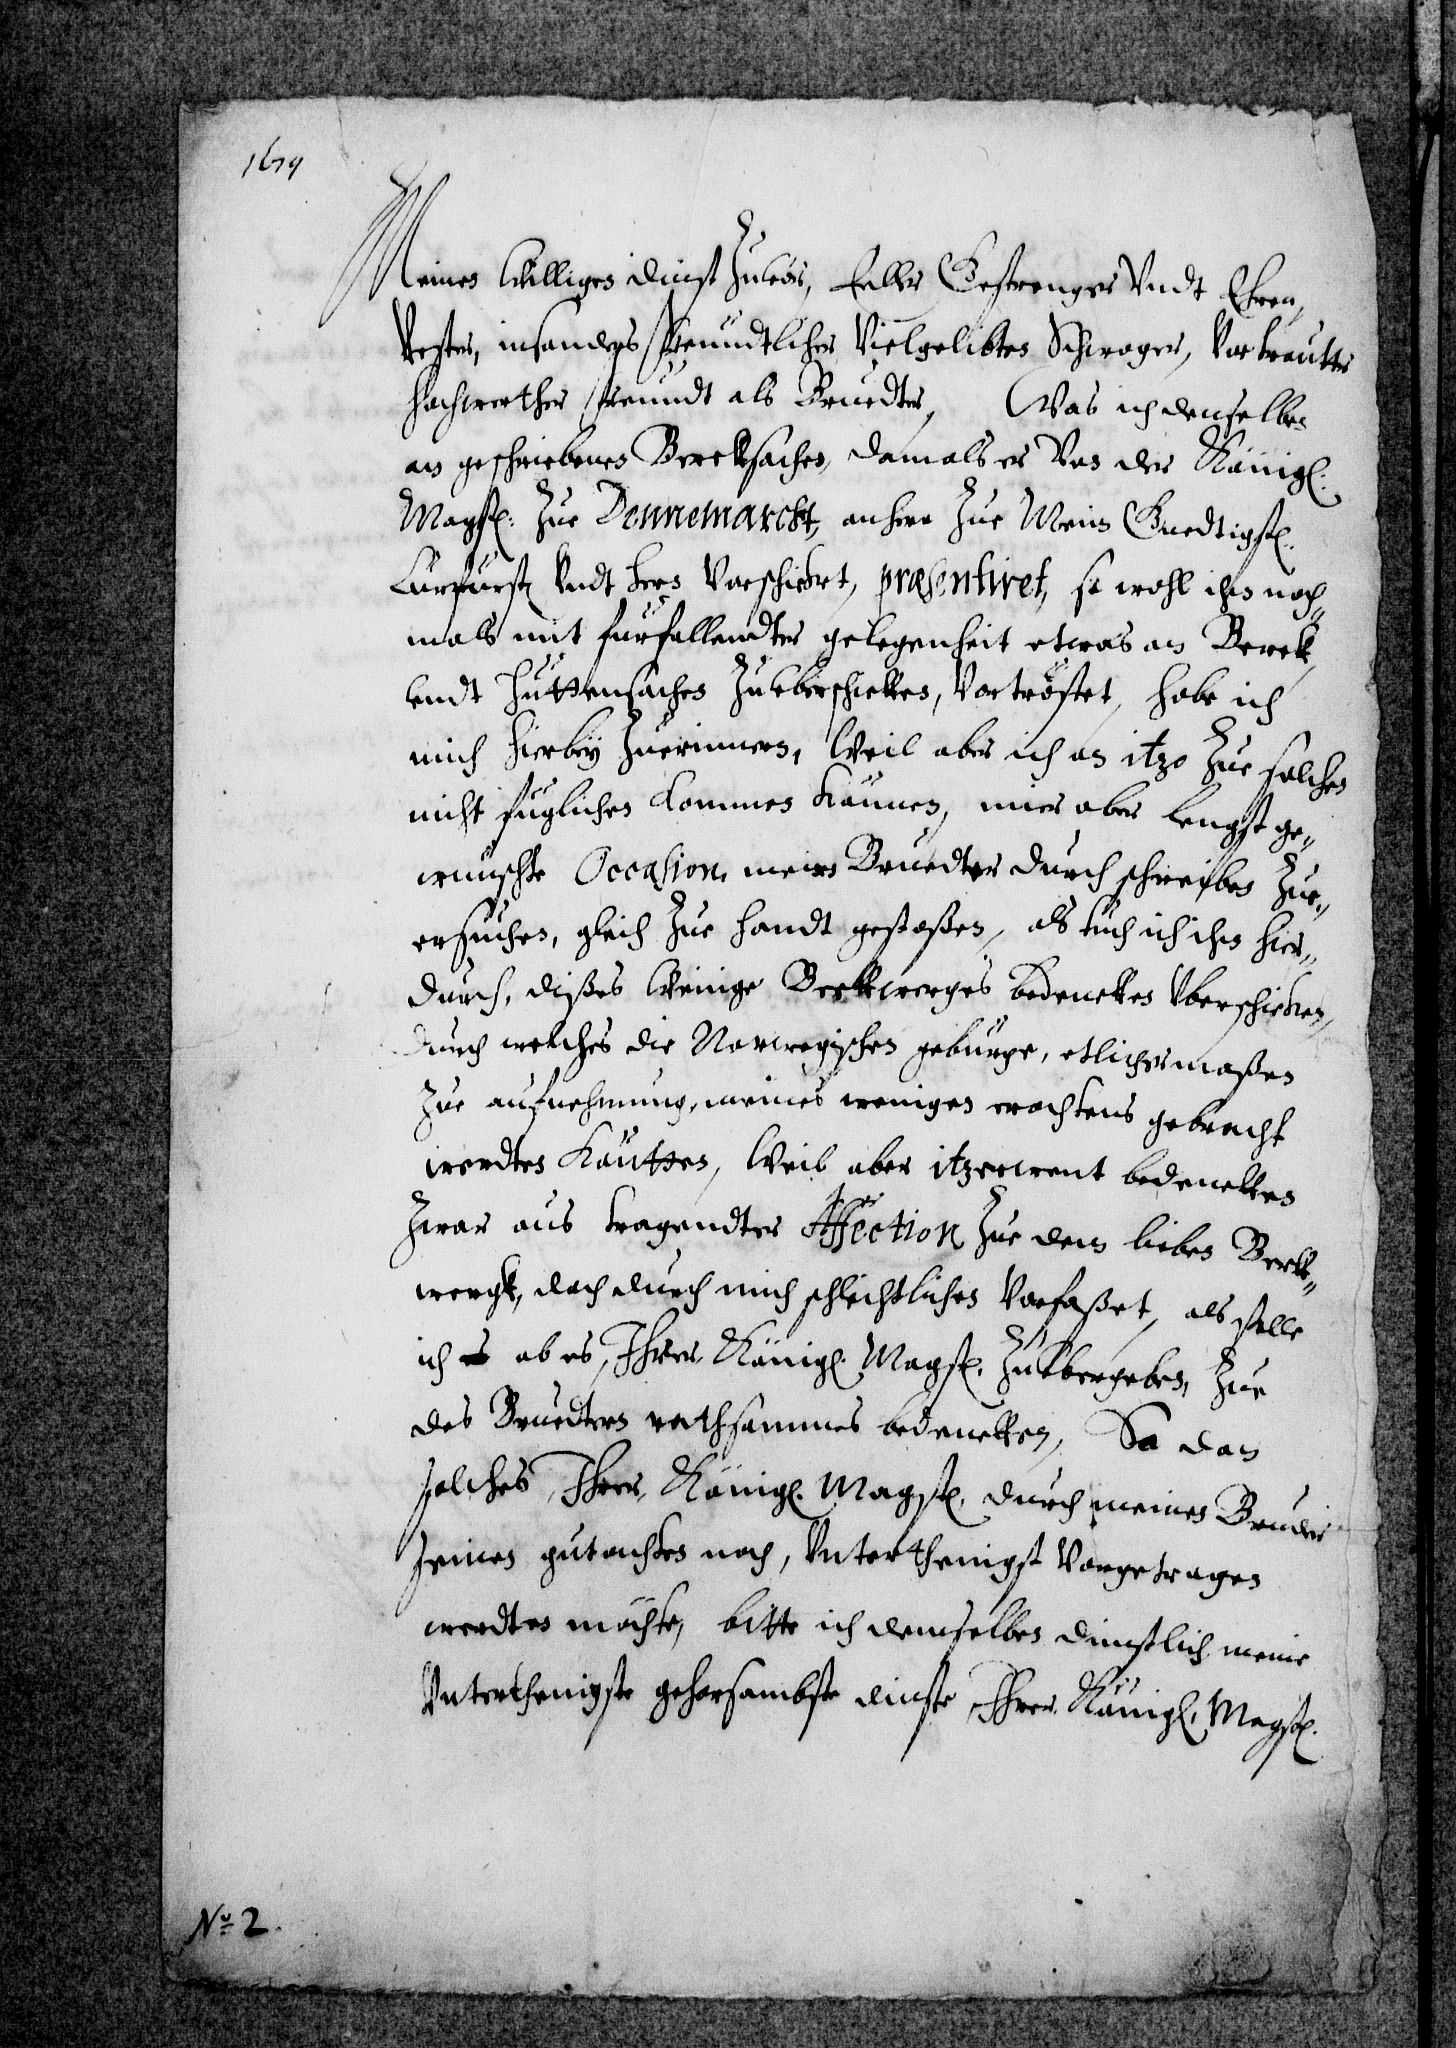 1679
Meinen Willigen dinst Zuvor, Edler Gestrenger Vndt Ehren„
Vester, insonders freundtlicher Vielgelibter Schwager, Vortrautter
hochwerther freundt als Brudter, Was ich demselben
an geschriebenen Bercksachen, damals er Von der Königl.
Magst: Zue Dennemarckt, anhero Zue Mein Gnedtigst.
Curfürst Vndt hern Vorschickt, præsentiret, so wohl ihm noch„
mals mit fürfallendter gelegenheit etwas an Berck
vndt Hüttensachen Zuvberschicken, Vortröstet, habe ich
mich hierbÿ Zuerinnern, Weil aber ich an itzo Zue solchen
nicht füglichen kommen können, mir aber lengst ge„
wünschte Occasion, mein Brudter durch schreiben Zue„
ersuchen, gleich Zue handt gestoßen, als thu ich ihm hier„
durch, dißes Wenige Berckwerges bedencken Vberschicken,
durch welches die Norwegischen gebürge, etlichermaßen
Zue aufnehmung, meines wenigen erachtens gebracht
werdten köntten, Weil aber itzerwent bedencken
Zwar aus tragendter Affection Zue dem lieben Berck„
wergk, doch durch mich schlechtlichen Vorfaßet, als stelle
ich ob es, Ihrer Königl. Magst. Zuvbergeben, Zue
des Brudtern rathsammes bedencken, So dan
solches, Ihrer Königl. Magst. durch meinen Bruder
seinen gutachten nach, Vnterthenigst Vorgetragen
werdten möchte, bitte ich demselben dinstlich meine
Vnterthenigste gehorsambste dinste, Ihrer Königl. Magst.
No 2.